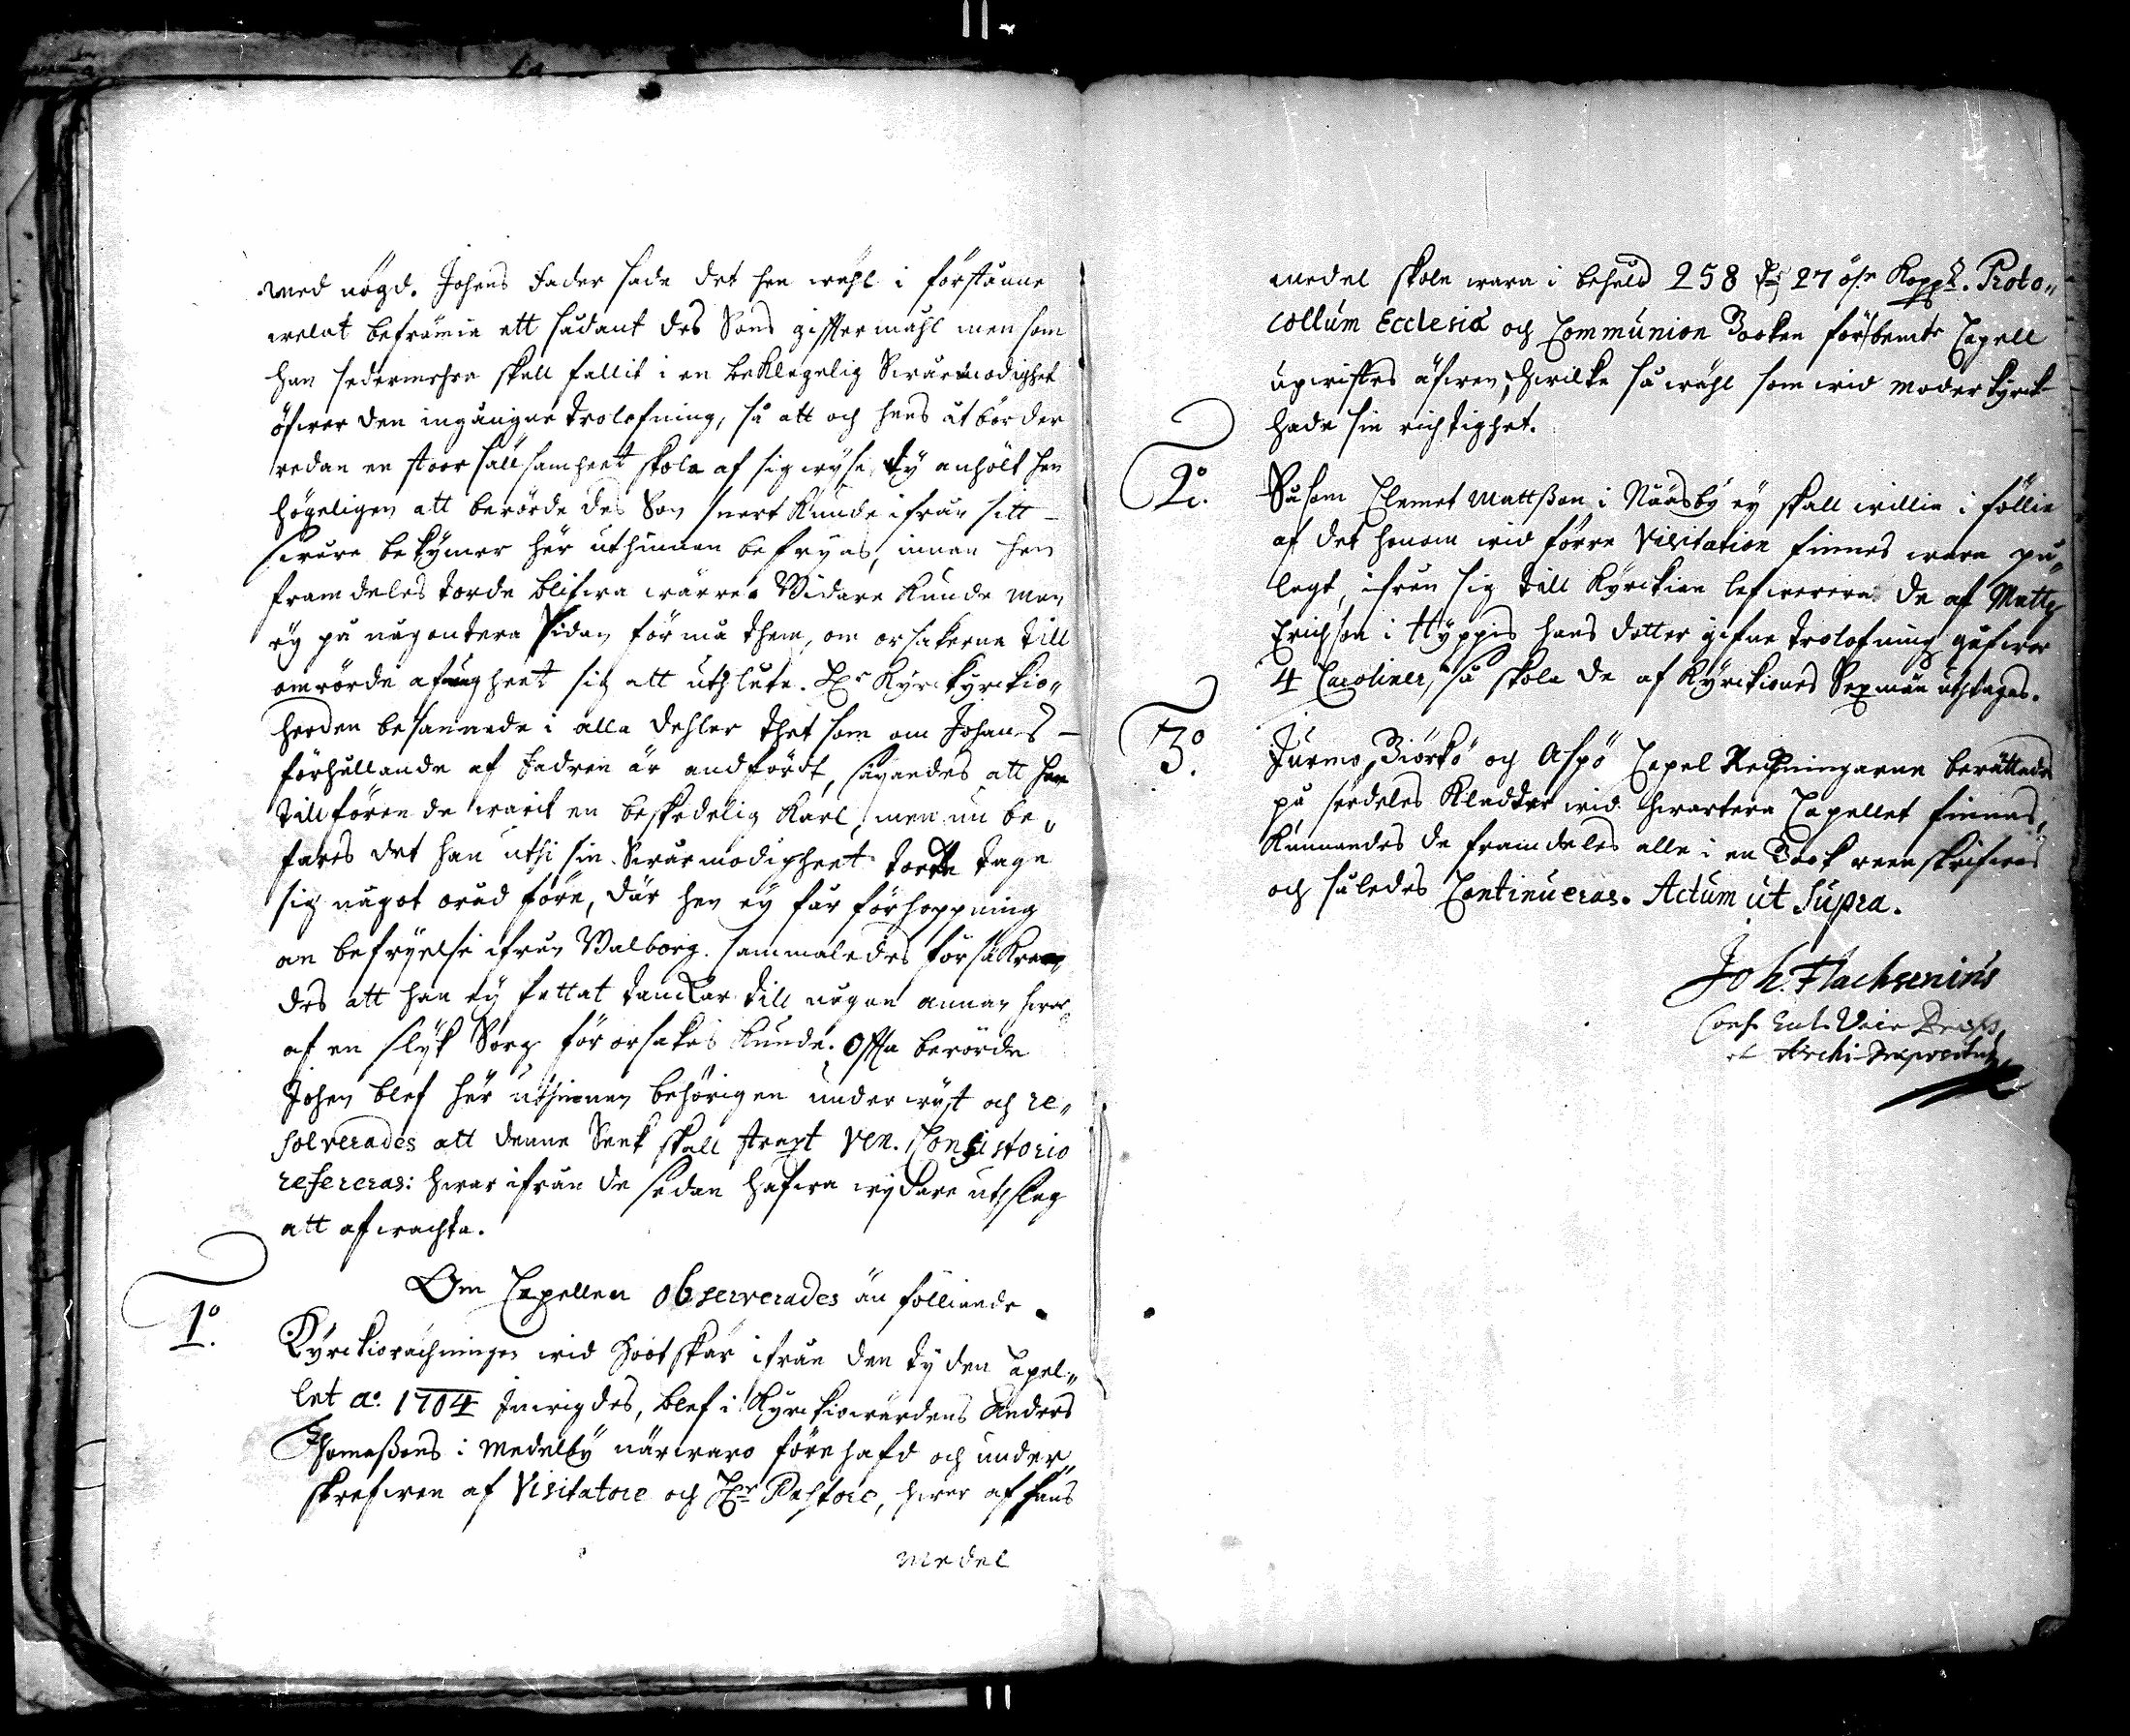 med nögd. Johans Fader sade det han wähl i förstånne
welat befrämia ett sådant des Sons gifftermåhl men som
han sedermehra skall fallit i en beklagelig Swårmodighet
öfwer den ingångne trolofning, så att och hans åtbörder
redan en stoor sällsamheet skola af sig wysa, ty anhölt han
högeligen att berörde des Son snart kunde ifrån sitt
swåra bekymer här uthinnan befryas, innan han
framdeles torde blifwa wärre. Widare kunde man
ey på någontera sidan förmå them, om orsakerne till
omrörde afwugheet sig att uthlåta. Hr Kyrckyrckio„
herden besannade i alla dehler thet som om Johans
förhållande af Fadren är andfördt, säyandes att han
tillförende warit en beskedelig Karl, men nu be„
fares det han uthi sin Swårmodigheet torde tage
sig något oråd före, där han ey får förhoppning
om befryelse ifrån Walborg. sammaledes försäkran„
des att han ey fattat tanckar till någon annan hwar„
af en slyk Sorg förorsakas kunde. Offta berörde
Johan blef här uthinnan behörigen underwyst och re„
solverades att denne Saak skall straxt Ven. Consistorio
refereras: hwar ifrån de sedan hafwa wydare uthslag
att afwachta.
Om Capellen observerades än följiande.
1o. Kyrckiorächningen wid Hootskär ifrån den tyden Capel„
let ao. 1704 Inwigdes, blef i Kyrckiowärdens Anders
Thomeßons i Medelby närwaro förehafd och under„
skrefwen af Visitatore och Hr Pastore, hwar af hans
medel
medel skola wara i behåld 258 dr 27 öre Koppr. Proto„
collum Ecclesiæ och Communion Booken för bemte Capell
upwistes äfwen, hwilka så wähl som wid moderkyrck
hade sin richtighet.
2o. Såsom Clemet Mattßon i Nääsby ey skall willia i föllie
af det honom wid förra Visitation finnes wara på„
lagt, ifrån sig till Kyrckian lefwerera de af Matts
Erichson i Hyppis hans dotter gifne trolofning gåfwor
4 Caroliner, så skola de af Kyrckiones Sexmän uthtagas.
3o. Jurmo, Biörkö och Aspö Capel Rechningarne berättades
på serdeles Kladder wid hwartera Capellet finnas,
Kunnandes de framdeles alle i en Book reenskrifwas
och således Continueras. Actum ut Supra.
Joh. Flachsenius
Cons. Eccl. Vice Præses,
et Archi-Præpositus